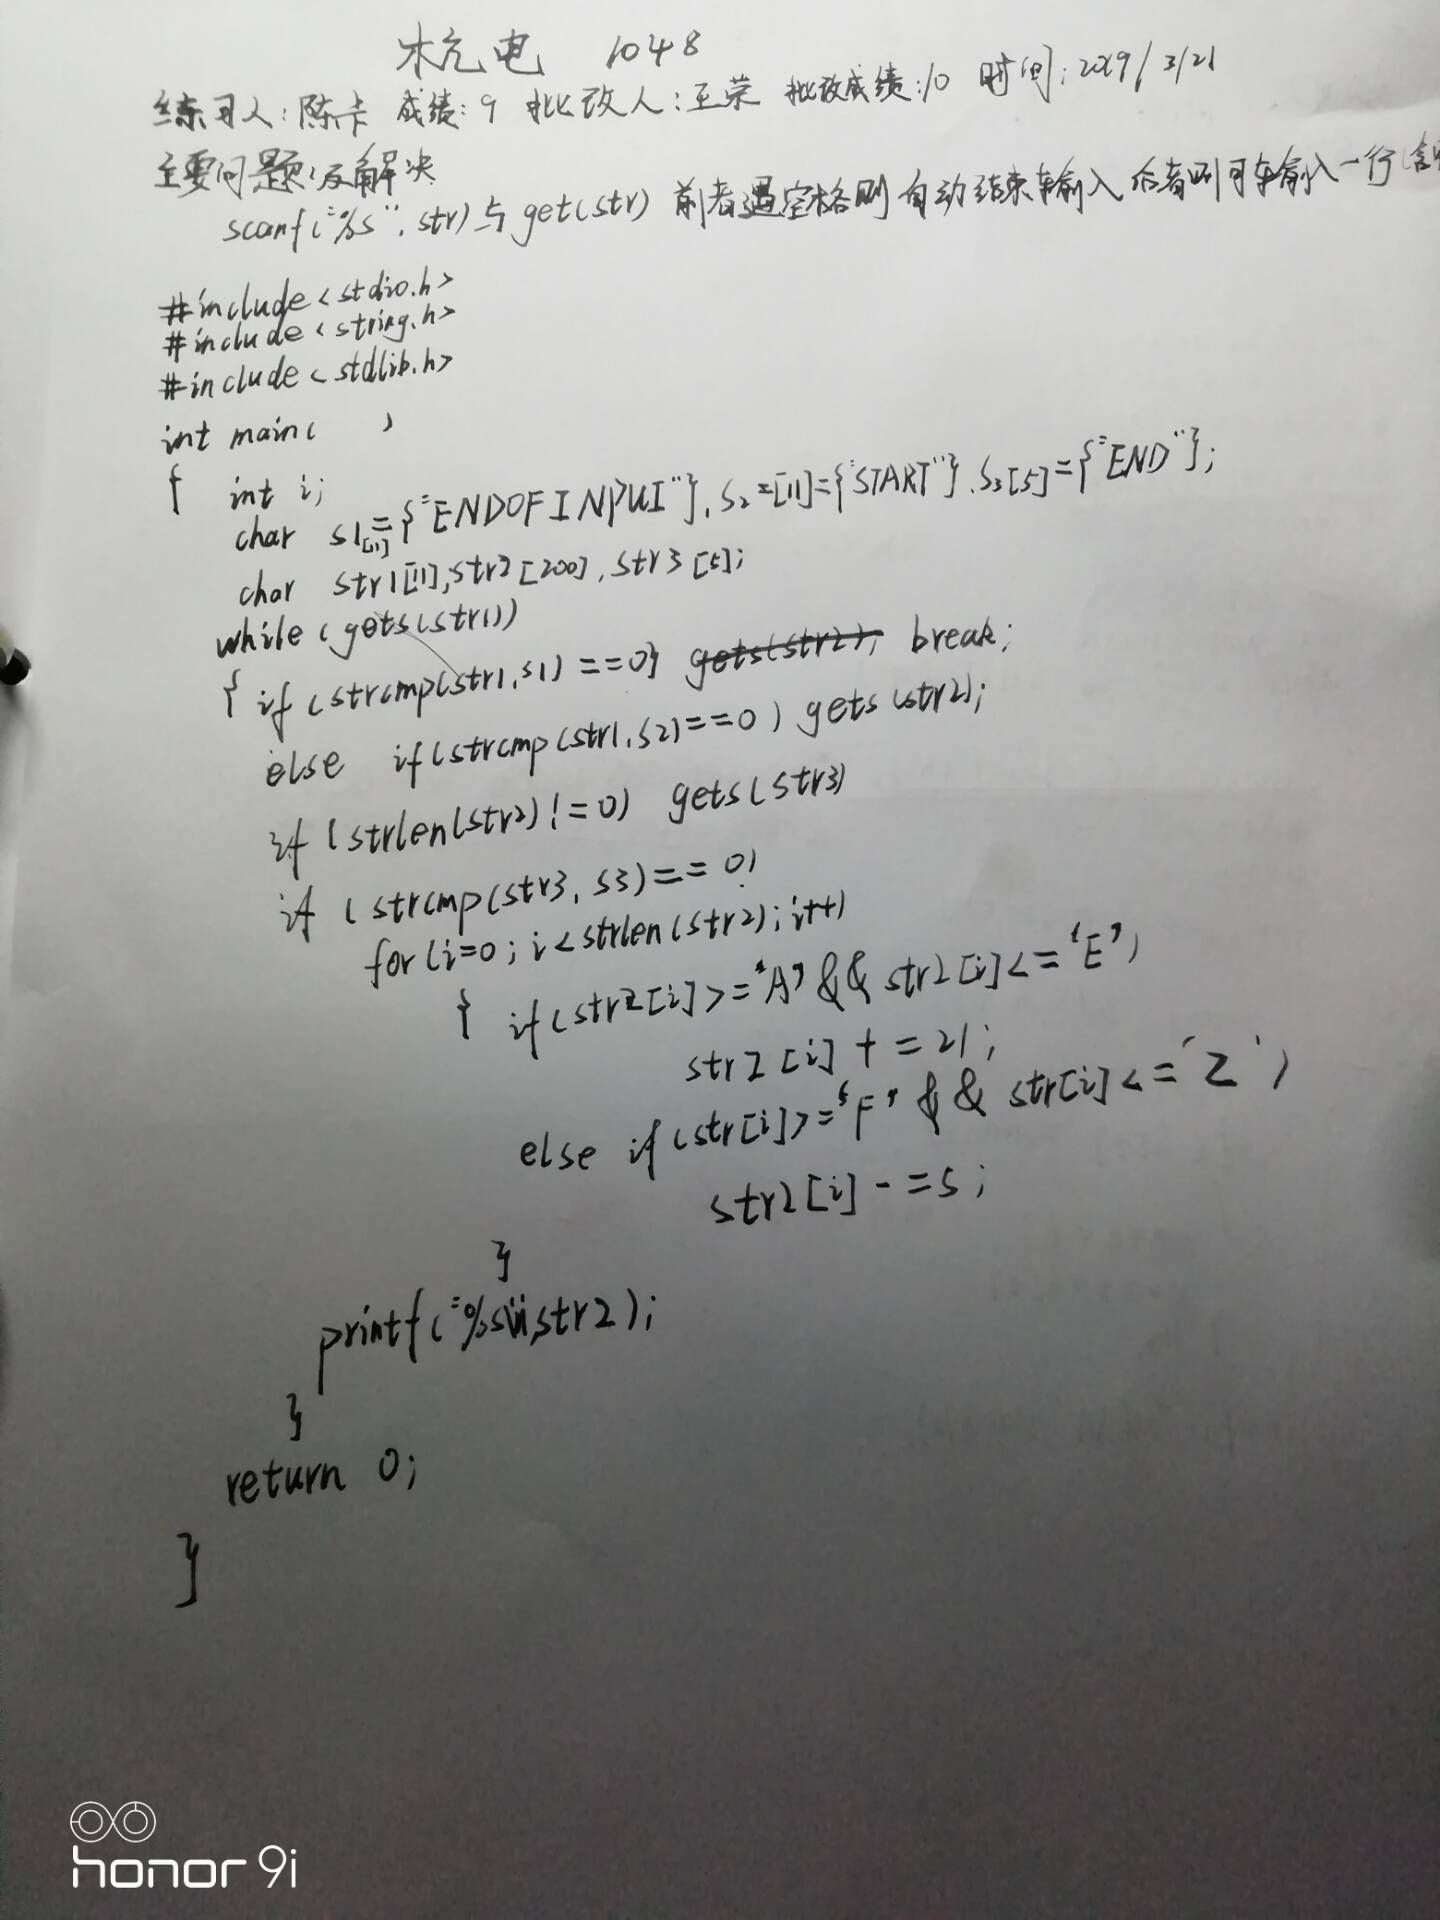 杭电 1048
练习人:陈卡 成绩:9 批改人:王荣 批改成绩:10 时间:2019/3/21
主要问题及解决
scanf("%s",str)与get(str) 前者遇空格则自动结束输入 后者则可车输入一行(含
#include<stdio.h>
#include<string.h>
#include<stdlib.h>
int main( )
{ int i;
char s1[11]={"ENDOFINPUI"},s2=[11]={"START"},s3[5]={"END"};
char str1[11],str2[200],str3[5];
while(gets(str1))
{ if(strcmp(str1,s1)==0) gets(str2); break;
else if(strcmp(str1,s2)==0) gets(str2);
if(strlen(str2)!=0) gets(str3)
if(strcmp(str3,s3)==0)
for(i=0;i<strlen(str2);i++)
{ if(str2[i]>='A'&&str2[i]<='E')
str2[i]+=21;
else if(str[i]>='F'&&str[i]<='Z')
str2[i]-=5;
}
printf("%s\n",str2);
}
return 0;
}
honor 9i